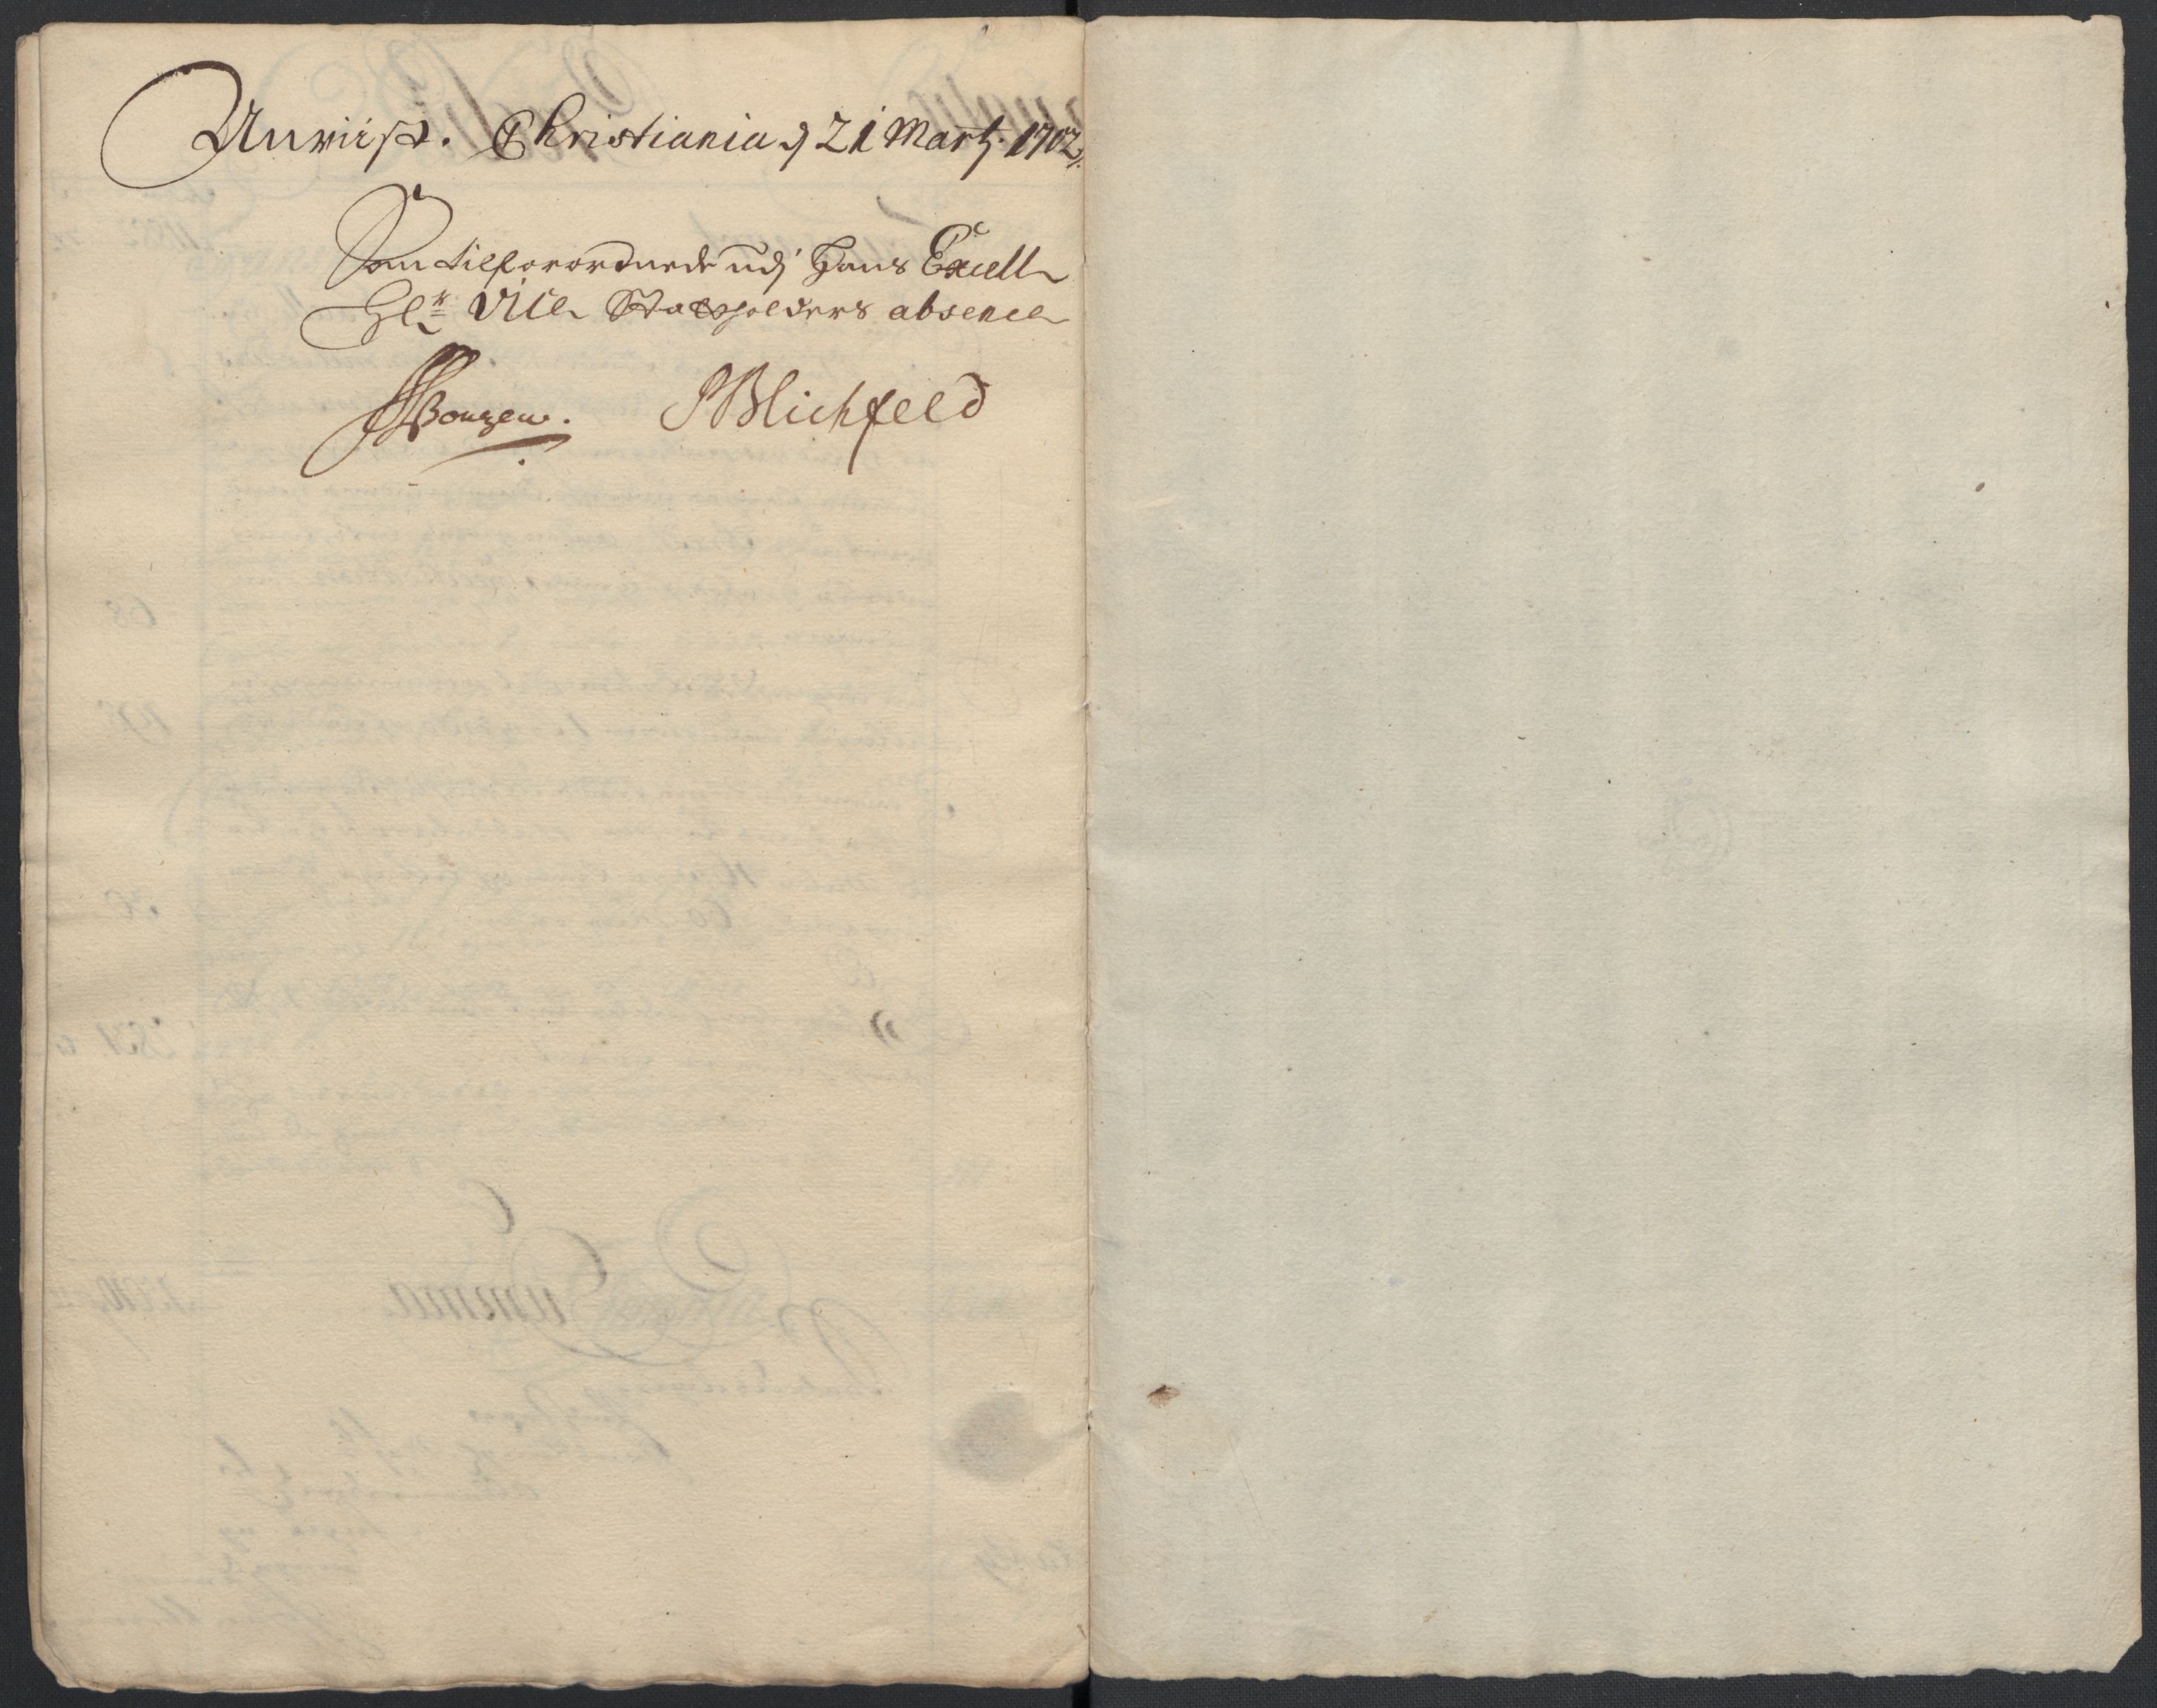 Anviist. Christiania d 21 Martj. 1702.
Som tilforordnede udj Hans Excell
Hr. Vice Statholders absence
Blichfeld